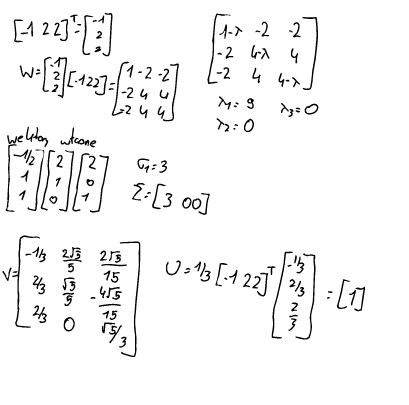 [-1 2 2]ᵀ = [-1 2 2]
W = [-1 2 2] [-1 2 2] = [1 -2 -2
-2 4 4
-2 4 4]
[1-λ -2 -2
-2 4-λ 4
-2 4 4-λ]
λ₁ = 9 λ₃ = 0
λ₂ = 0
[-1/2 1 1] [2 1 0] [2 0 1]
σ₁ = 3
Σ = [3 0 0]
V = [-1/3 2√5/5 2√5/15
2/3 √5/5 -4√5/15
2/3 0 √5/3]
U = 1/3 [-1 2 2]ᵀ [-1/3 2/3 2/3] = [1]